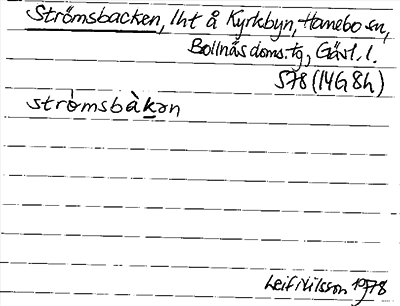 Strömsbacken, lht å Kyrkbyn, Hanebo sn,
Bollnäs doms.tg, Gävl. l.
578 (14G8h)
strömsbàkən
Leif Nilsson 1978